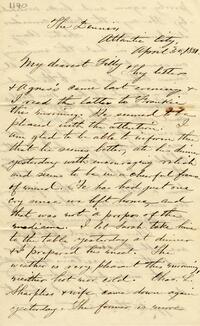 1190
The Dennis
Atlantic City,
April 30, 1888
My dearest Felly
Thy letter
& Agnes's came last evening &
I read the latter to Frankie
this morning. He seemed
pleased with the attention. I
am glad to be able to inform thee
that he seems better, ate his dinner
yesterday with encouraging relish
and seems to be in a cheerful frame
of mind. He has had just one
cry since we left home, and
that was a propos of the
medicine. I let Sarah take him
to the table yesterday at dinner
I prepared the meat. The
weather is very pleasant this morning,
weather but not cold. Chas. L.
Sharpless & wife came down again
yesterday. The former is more